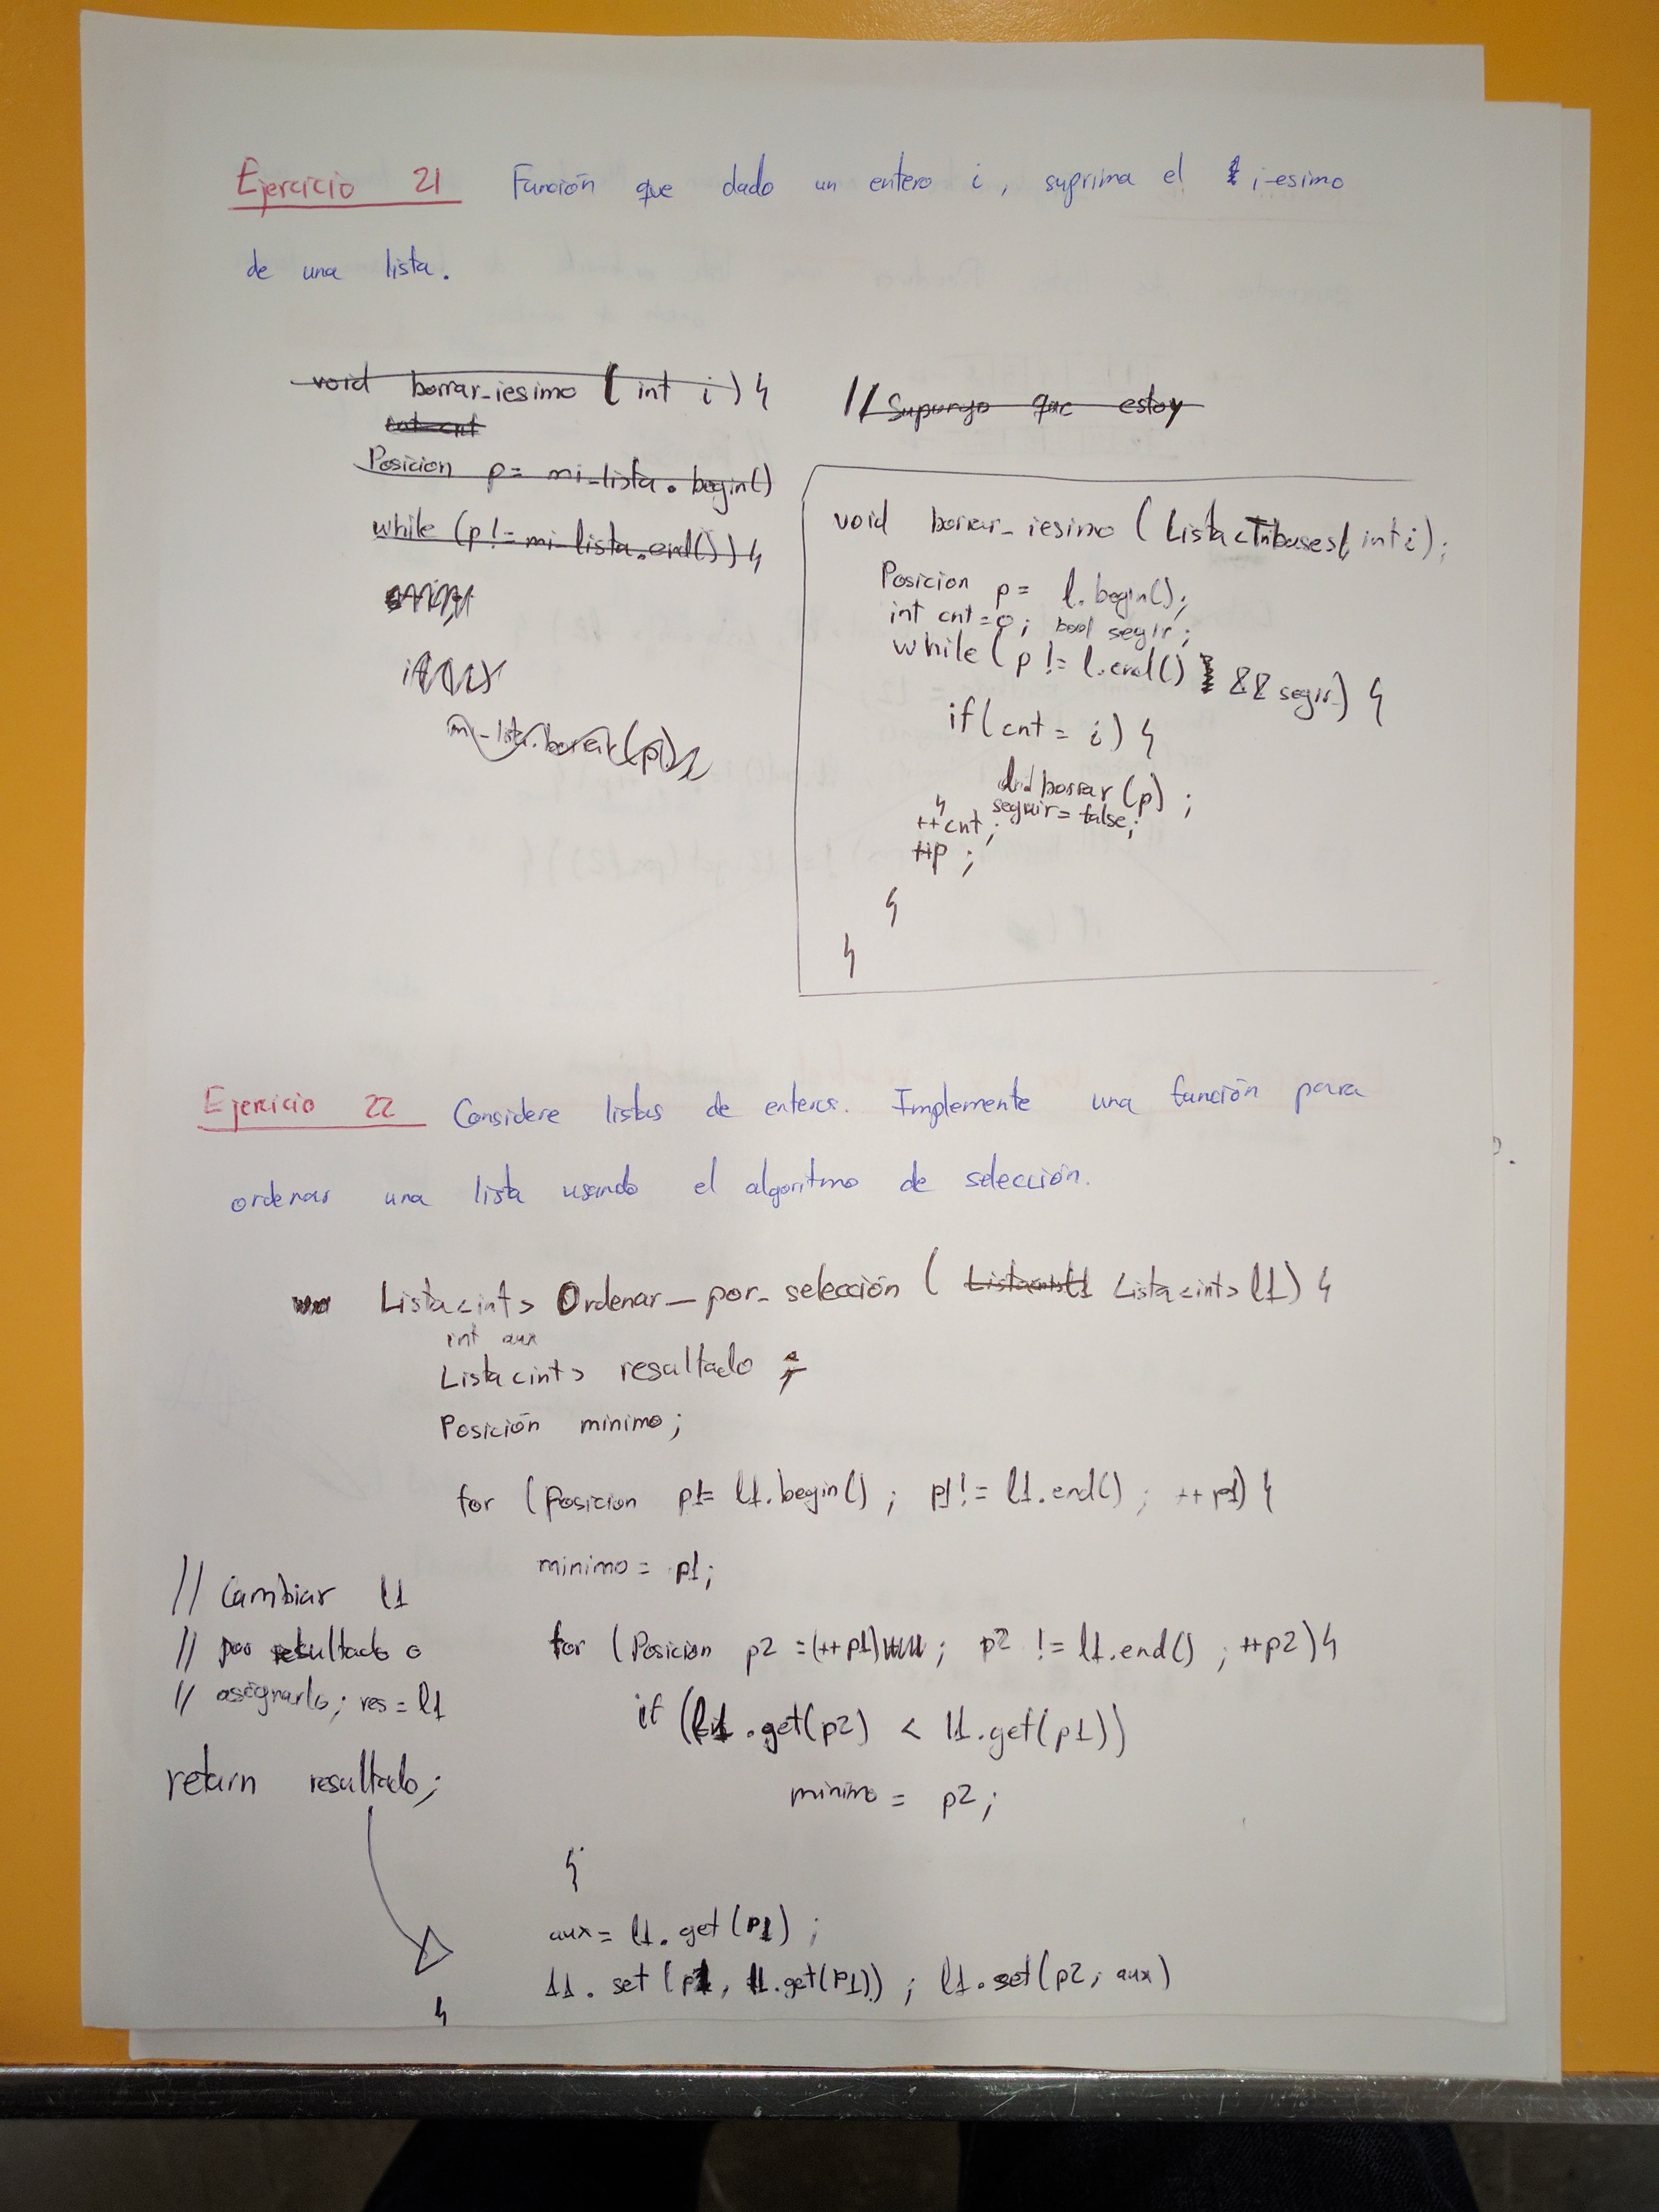 Ejercicio 21 Función que dado un entero i, suprima el i-esimo
de una lista.
void borrar_iesimo (int i) {
int cnt
Posicion p= mi_lista.begin()
while (p != mi_lista.end()) {
mi_lista.borrar(p);
// Supongo que estoy
void borrar_iesimo (Lista<Tbase> l, int i);
Posicion p= l.begin();
int cnt=0; bool segir;
while (p != l.end() && segir) {
if (cnt = i) {
borrar(p);
} seguir = false;
++cnt;
++p;
}
}
Ejercicio 22 Considere listas de enteros. Implemente una función para
ordenar una lista usando el algoritmo de selección.
Lista<int> Ordenar_por_selección ( Lista<int> l1 Lista<int> l1) {
int aux
Lista<int> resultado ;
Posición minimo;
for (Posicion p1= l1.begin() ; p1 != l1.end() ; ++p1) {
minimo = p1;
for (Posicion p2 =(++p1) ; p2 != l1.end() ; ++p2) {
if (l1.get(p2) < l1.get(p1))
minimo = p2;
}
aux= l1.get(p1) ;
l1.set(p1, l1.get(p1)) ; l1.set(p2, aux)
// Cambiar l1
// por resultado o
// asignarlo; res = l1
return resultado;
}